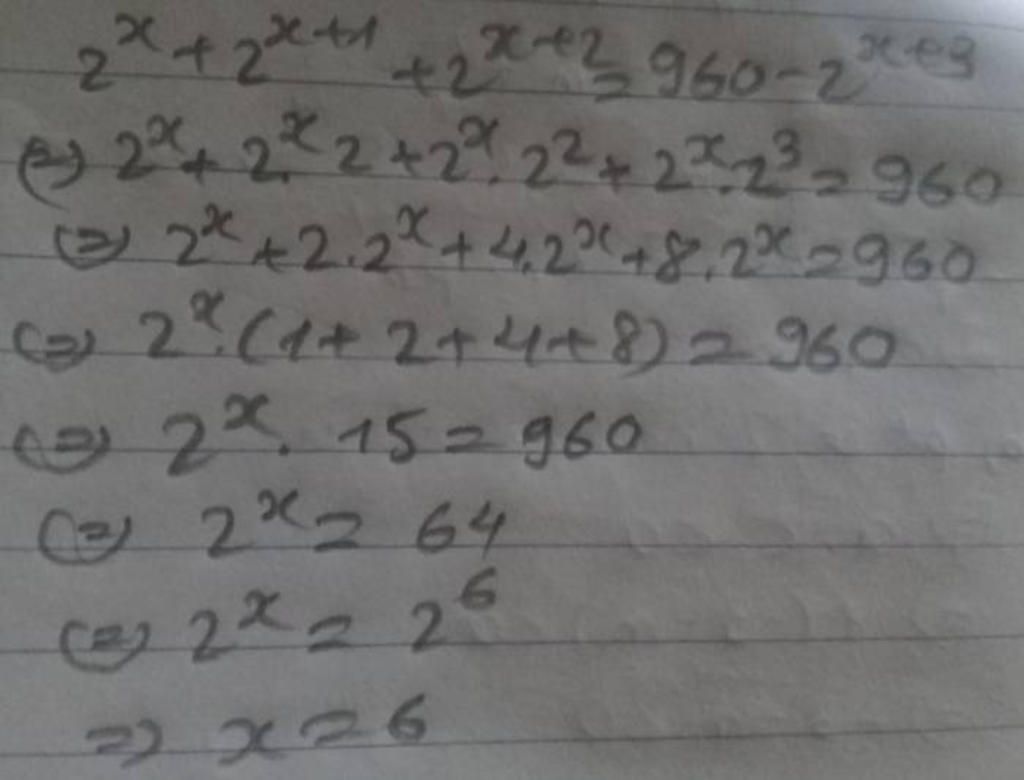 2^x + 2^{x+1} + 2^{x+2} = 960 - 2^{x+3}
(=) 2^x + 2^x.2 + 2^x.2^2 + 2^x.2^3 = 960
(=) 2^x + 2.2^x + 4.2^x + 8.2^x = 960
(=) 2^x.(1 + 2 + 4 + 8) = 960
(=) 2^x. 15 = 960
(=) 2^x = 64
(=) 2^x = 2^6
=) x = 6